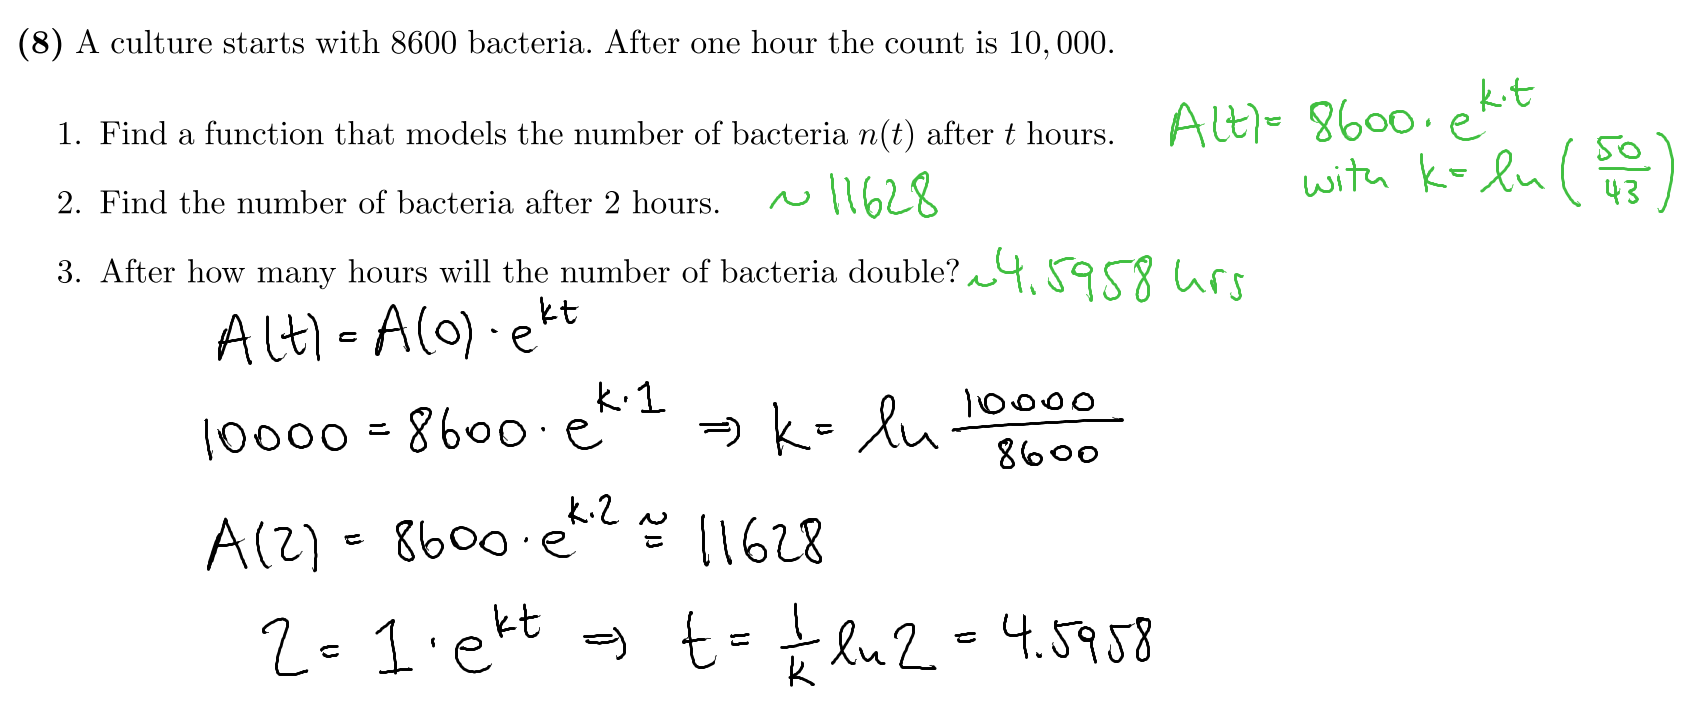 (8) A culture starts with 8600 bacteria. After one hour the count is 10,000.
1. Find a function that models the number of bacteria n(t) after t hours. A(t) = 8600 · e^{k·t}
with k = ln(50/43)
2. Find the number of bacteria after 2 hours. ~ 11628
3. After how many hours will the number of bacteria double? ~4.5958 hrs
A(t) = A(0) · e^{kt}
10000 = 8600 · e^{k·1} ⇒ k = ln 10000/8600
A(2) = 8600 · e^{k·2} ≅ 11628
2 = 1 · e^{kt} ⇒ t = 1/k ln 2 = 4.5958